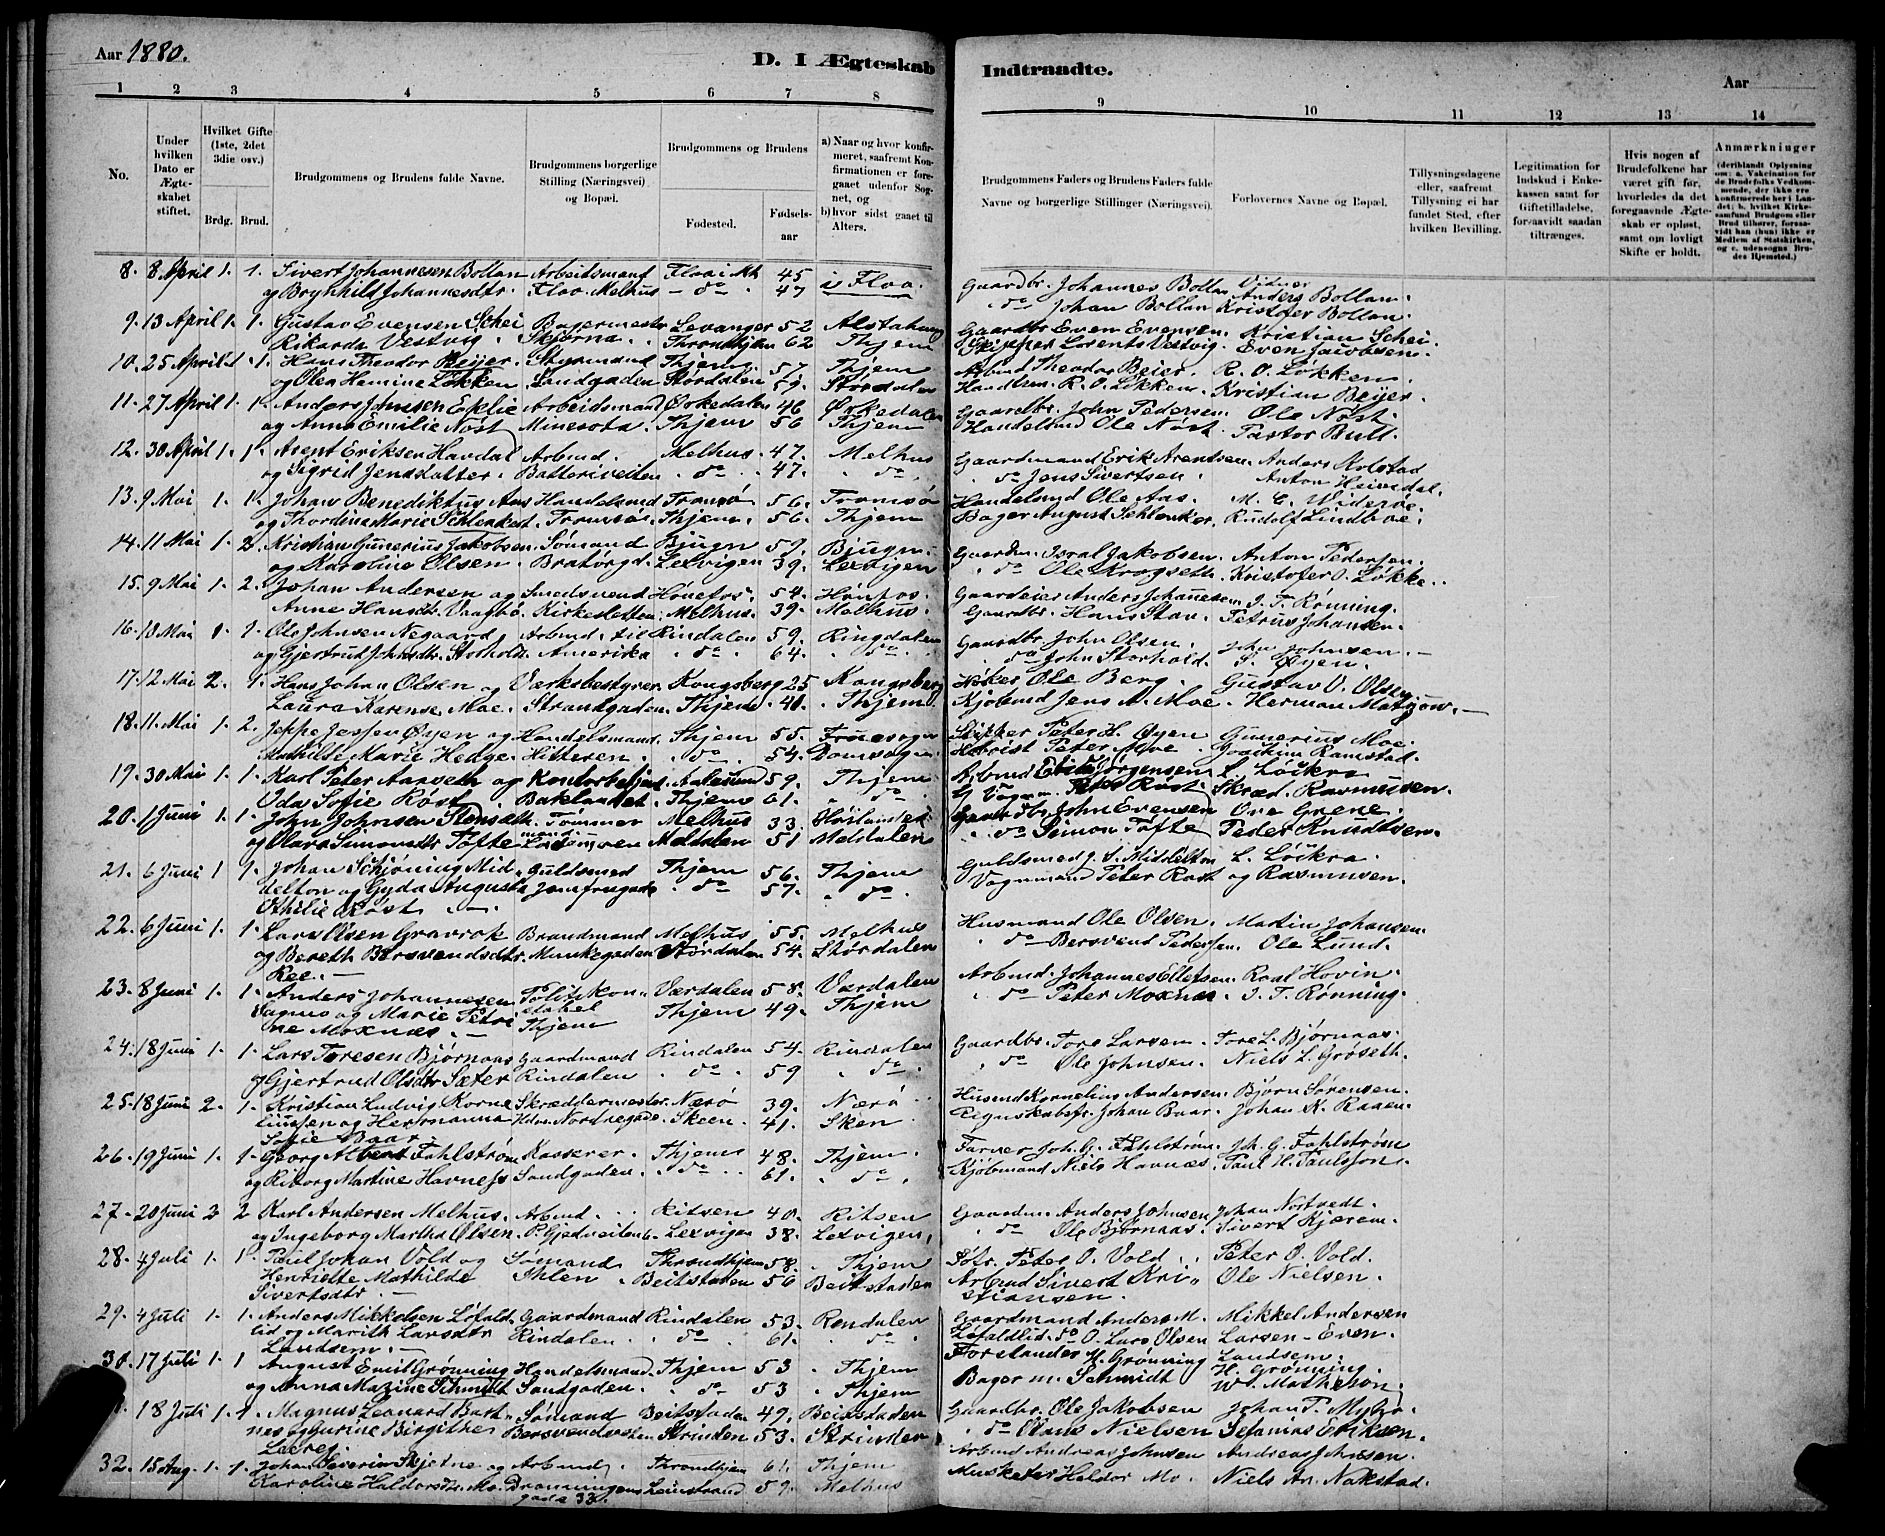 Aar 1880.
D. I Ægteskab Indtraadte.
Aar
1 2 3 4 5 6 7 8 9 10 11 12 13 14
No.
Under hvilken Dato er Ægteskabet stiftet.
Hvilket Gifte (1ste, 2det 3die osv.)
Brdg. Brud.
Brudgommens og Brudens fulde Navne.
Brudgommens borgerlige Stilling (Næringsvei) og Bopæl.
Brudgommens og Brudens
Fødested. Fødselsaar
a) Naar og hvor konfirmeret, saafremt Konfirmationen er foregaaet udenfor Sognet, og
b) hvor sidst gaaet til Alters.
Brudgommens Faders og Brudens Faders fulde Navne og borgerlige Stillinger (Næringsvei).
Forlovernes Navne og Bopæl.
Tillysningsdagene eller, saafremt Tillysning ei har fundet Sted, efter hvilken Bevilling.
Legitimation for Indskud i Enkekassen samt for Giftetilladelse, forsaavidt saadan tiltrænges.
Hvis nogen af Brudefolkene har været gift før, hvorledes da det foregaaende Ægteskab er opløst, samt om lovligt Skifte er holdt.
Anmærkninger
(deriblandt Oplysning om: a. Vakcination for de Brudefolks Vedkommende, der ikke ere konfirmerede her i Landet; b. hvilket Kirkesamfund Brudgom eller Brud tilhører, forsaavidt han (hun) ikke er Medlem af Statskirken, og c. udensogns Brudes Hjemsted.)
8. 8 April 1. 1. Sivert Johannesen Bollan Arbeidsmand Flaa i Mh 45 i Flaa. Gaardbr. Johannes Bollan Vidner Anders Bollan.
og Brynhild Johannesdtr. Flaa Melhus - do. 47 do Johan Bollan Kristofer Bollan.
9. 13 April 1. 1. Gustav Evensen Schei Bagermester Levanger 52 Alstahaug Gaardbr Even Evensen. Kristian Schei.
Rikarda Vestvig. Skjørna. Throndhjem 62 Thjem Skipper Lorents Vestvig. Even Jacobsen.
10. 25 April 1. 1. Hans Theodor Beijer Styrmand Thjem. 57 Thjem Arbmd Theodor Beier. R. O. Løkken.
og Olea Hamine Løkken Sandgaden Størdalen 59. Størdalen Handlsm. R. O. Løkken. Kristian Beijer.
11. 27 April 1. 1. Anders Johnsen Eklie Arbeidsmand Ørkedalen 46 Ørkedalen Gaardbr. John Pedersen Ole Nøst.
og Anna Emilie Nøst Minesota. Thjem 56 Thjem Handelsmd Ole Nøst. Pastor Bull.
12. 30 April 1. 1. Arent Eriksen Havdal Arbmd. Melhus. 47. Melhus Gaardmand Erik Arentsen. Anders Kolstad
og Sigrid Jensdatter. Batteriveiten do. 47. do. do Jens Sivertsen Anton Heivedal.
13. 9 Mai 1. 1. Johan Benediktus Aas Handelsmd Tromsø 56. Tromsø Handelsmd Ole Aas. M. E. Widerøe.
og Thordine Marie Schlenker. Tromsø. Thjem. 56. Thjem Bager August Schlenker. Rudolf Lindboe.
14. 11 Mai 1. 2. Kristian Gunerius Jakobsen Sømand Bjugn 52. Bjugn. Gaardm. Isral Jakobsen. Anton Pedersen.
og Karoline Olsen. Bratørgd. Lexvigen 39. Lexvigen do Ole Krogseth. Kristofer O. Løkke.
15. 9 Mai 1. 2. Johan Andersen og Smedsvend Hønefos. 54. Hønfos. Gaardeier Anders Johannesen J. T. Rønning.
Anne Hansdtr. Vaagbø. Kirkesletten. Melhus. 39. Melhus. Gaardbr. Hans Stav. Petrus Johansen.
16. 10 Mai 1. 1. Ole Johnsen Negaard Arbmd. til Rindalen 59. Ringdalen Gaardbr. John Olsen. John Johnsen.
og Gjertrud Johnsdtr. Storholt. Amerika do. 64. do. do John Storhold. S. Øyen.
17. 12 Mai 2. 1. Hans Johan Olsen og Værksbestyrer Kongsberg 25 Kongsberg Ole Berg. Gustav O. Olsen
Laura Karense Moe. Strandgaden. Thjem. 40. Thjem. Kjøbmd Jens A. Moe. Herman Matzow.
18. 11. Mai 1. 2. Jeppe Jessen Øyen og Handelsmand. Thjem 55. Fruesogn Skipper Peter H. Øyen Gunerius Moe.
Mathilte Marie Hedge. Hitteren. do. 54. Domsogn. Peter Moe. Joakim Ramstad.
19. 30 Mai 1. 1. Karl Peter Aanseth og Kontorbetjent Aalesund 59. Thjem Arbmd Jørgensen L. Løikra
Oda Sofie Røst. Baklandet. Thjem. 61. do. Vognm. Peter Røst. Skræd. Rasmussen.
20. 1 Juni 1. 1. John Johnsen Stenseth Tømmermand Melhus 33 Høilandet Gaardbr. John Evensen Ove Grene.
og Olara Simonsdtr Tofte Ladejarlen Meldalen 51 Meldalen do Simon Tofte Peder Knudtsen.
21. 6 Juni 1 1. Johan Schjøning Mid- Guldsmed Thjem 56. Thjem Guldsmed J. S. Middelton L. Løikra.
delton og Gyda Augusta Jomfrugade do. 57. do. Vognmand Peter Røst og Rasmussen.
Othilie Røst
22. 6 Juni 1. 1. Lars Olsen Gravrok Brandmand Melhus 55. Melhus Husmand Ole Olsen. Martin Johansen.
og Bereth Bersvendsdtr. Munkegaden Størdalen 54. Størdalen do Bersvend Pedersen. Ole Lund.
Ree.
23. 8 Juni 1. 1. Anders Johannesen Politikon- Værdalen 58. Værdalen Arbmd. Johannes Ellefsen. Roal Hovin
Vagnes og Marie Petri- stabel Thjem 49. Thjem do Peter Moxnæs J. T. Rønning.
ne Moxnæs. Thjem
24. 18 Juni 1. 1. Lars Toresen Bjørnaas Gaardmand Rindalen 54. Rindalen Gaardbr. Tore Larsen. Tore L. Bjørnaas.
og Gjertrud Olsdtr Sæter Rindalen do. 59 do. do Ole Johnsen. Niels L. Grøseth.
25. 18 Juni 2. 1. Kristian Ludvig Korne- Skræddermester. Nærø 39. Nærø Husmd Kornelius Andersen. Bjørn Sørensen.
liussen og Hermanna Ndre. Nordregade. Skeen 41. Sken Johan Baar. Johan K. Raaen.
Sofie Baar.
26. 19 Juni 1. 1. Georg Albert Fahlstrøm Kasserer. Thjem 48. Thjem. Farver Joh. G. Fahlstrøm. Joh. G. Fahlstrøm
og Riborg Martine Havnæss Sandgaden. do 61. do. Kjøbmand Niels Havnæs. Paul H. Paulsson.
27. 20 Juni 2 2 Karl Andersen Melhus. Arbmd. Ritsen 40. Ritsen Gaardm. Anders Johnsen Johan Nostvedt.
og Ingeborg Martha Olsen. P. Gjedveiten 6. Lexvigen 38. Lexvigen. do Ole Bjørnaas. Sivert Kjærem.
28. 4 Juli 1. 1. Paul Johan Vold og Sømand Throndhjem 58. Thjem Peter O. Vold. Peter O. Vold.
Henriette Mathilde Ihlen. Beitstaden 56 Beitstaden Arbmd Sivert Kri- Ole Nielsen.
Sivertsdtr. stiansen.
29. 4 Juli 1. 1. Anders Mikkelsen Løfald- Gaardmand Rindalen 53. Rendalen Gaardmand Anders M. Mikkel Andersen
lid og Marith Larsdtr Rindalen. do. 61. do. Løfaldlid. do O. Lars Olsen Larsen - Even.
Landsem. Landsem.
30. 17 Juli 1. 1 August Emil Grønning Handelsmand. Thjem 53 Thjem Forstander H. Grønning H. Grønning.
og Anna Mazine Schmidt Sandgaden. do 53 Thjem Bager M. Schmidt W. Matheson.
18 Juli 1. 1. Magnus Leonard Bast- Sømand Beitstaden 49. Beitstaden Gaardbr. Ole Jakobsen Johan P. Myhr.
nes og Gurine Birgithe Bersvendveiten Strinden 53. Strinden do Claus Nielsen Sefanias Eriksen.
32. 15 Aug. 1. 1. Johan Severin Skjetne og Arbmd. Throndhjem 61. Thjem Arbmd Andreas Johnsen Andreas Johnsen.
Karoline Haldorsdtr. Mo. Dronningens Leinstrand 59. Melhus Musketer Haldor Mo. Niels An. Nakstad.
gade 33.